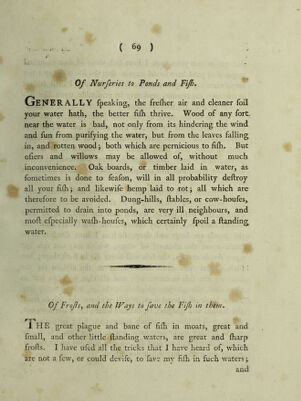 ( 69 )
Of Nurſeries to Ponds and Fiſh.
GENERALLY ſpeaking, the freſher air and cleaner ſoil
your water hath, the better fiſh thrive. Wood of any ſort
near the water is bad, not only from its hindering the wind
and ſun from purifying the water, but from the leaves falling
in, and rotten wood; both which are pernicious to fiſh. But
oſiers and willows may be allowed of, without much
inconvenience. Oak boards, or timber laid in water, as
ſometimes is done to ſeaſon, will in all probability deſtroy
all your fiſh; and likewiſe hemp laid to rot; all which are
therefore to be avoided. Dung-hills, ſtables, or cow-houſes,
permitted to drain into ponds, are very ill neighbours, and
moſt eſpecially waſh-houſes, which certainly ſpoil a ſtanding
water.
Of Froſts, and the Ways to ſave the Fiſh in them.
THE great plague and bane of fiſh in moats, great and
ſmall, and other little ſtanding waters, are great and ſharp
froſts. I have uſed all the tricks that I have heard of, which
are not a few, or could deviſe, to ſave my fiſh in ſuch waters;
and